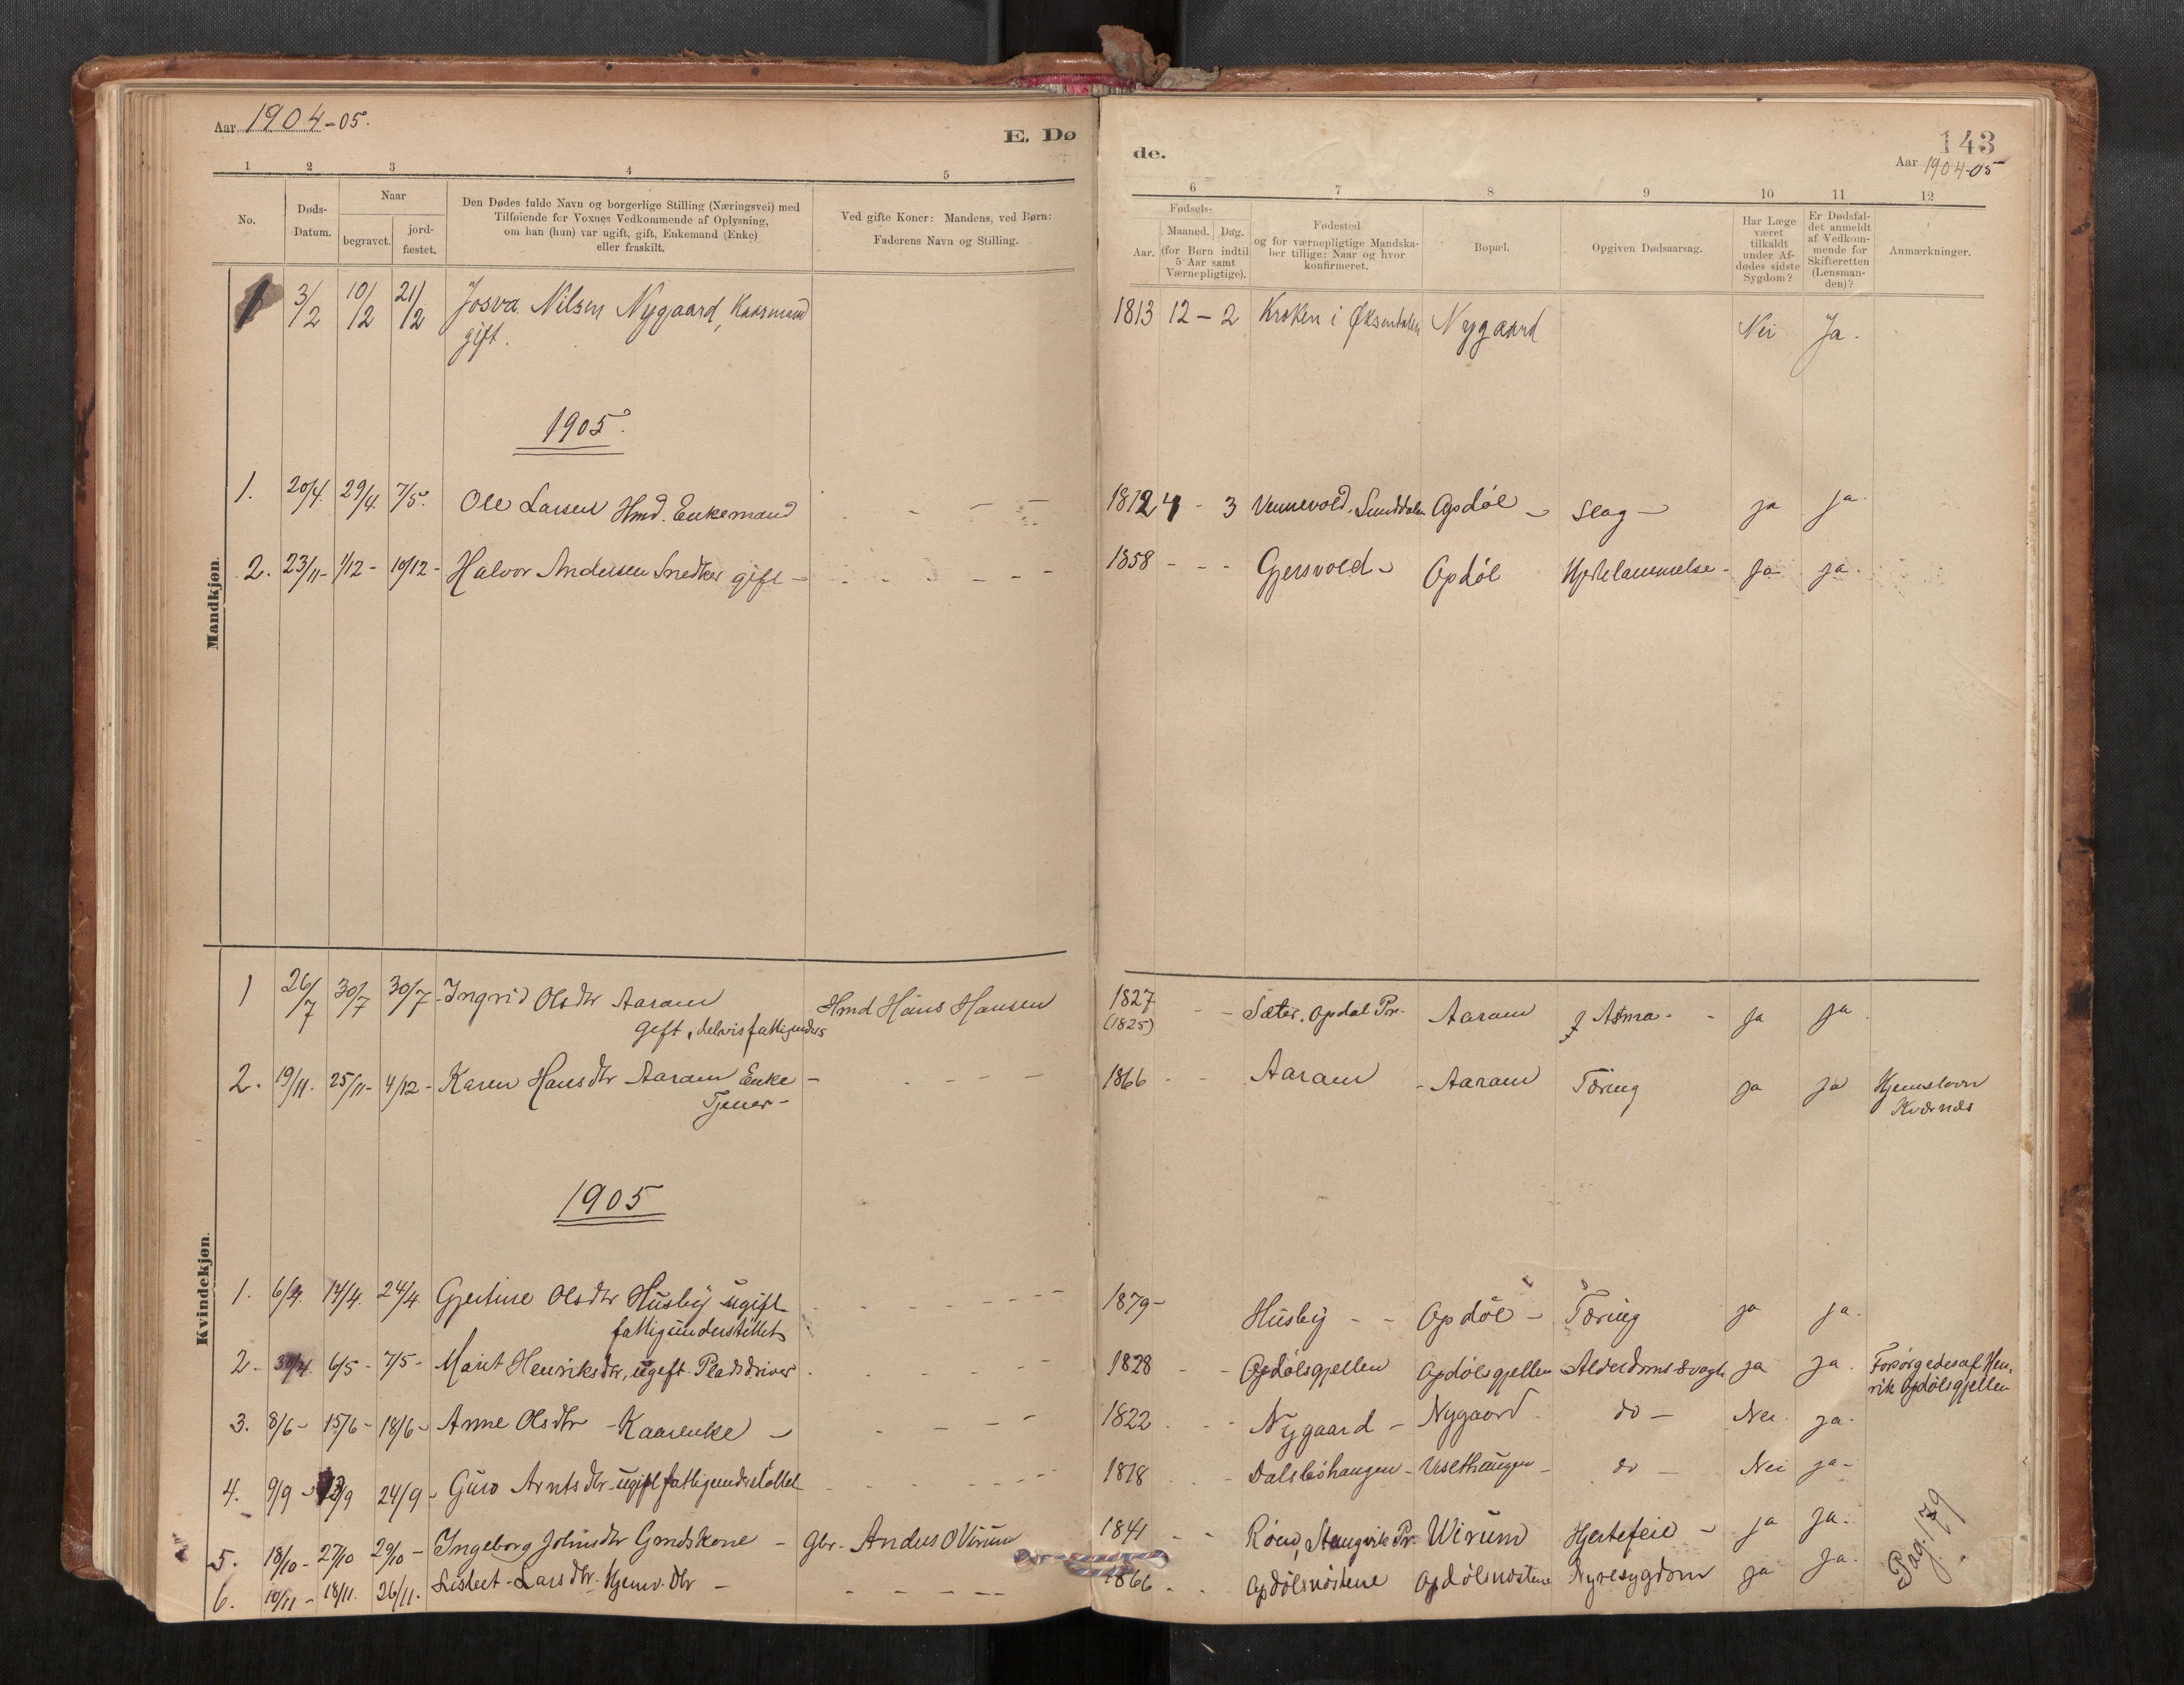 Aar 1904-05.
E. Dø
de.
143
Aar 1904-05
1 2 3 4 5 6 7 8 9 10 11 12
No.
Døds-
Datum.
Naar
begravet.
jord-
fæstet.
Den Dødes fulde Navn og borgerlige Stilling (Næringsvei) med
Tilføiende for Voxnes Vedkommende af Oplysning,
om han (hun) var ugift, gift, Enkemand (Enke)
eller fraskilt.
Ved gifte Koner: Mandens, ved Børn:
Faderens Navn og Stilling.
Fødsels-
Aar.
Maaned. Dag.
(for Børn indtil
5 Aar samt
Værnepligtige).
Fødested
og for værnepligtige Mandska-
ber tillige: Naar og hvor
konfirmeret.
Bopæl.
Opgiven Dødsaarsag.
Har Læge
været
tilkaldt
under Af-
dødes sidste
Sygdom?
Er Dødsfal-
det anmeldt
af Vedkom-
mende for
Skifteretten
(Lensman-
den)?
Anmærkninger.
Mandkjøn.
1 3/12 10/12 21/12 Josva Nilsen Nygaard, Kaarmand 1813 12 - 2 Kroken i Øksendalen Nygaard Nei Ja.
gift.
1905.
1. 20/4. 29/4. 7/5. Ole Larsen Hmd. Enkemand - - - 1812 4 - 3 Vennevold, Sunddalen Opdøl - Slag - ja ja.
2. 23/11- 1/12- 10/12- Halvor Andersen Snedker gift - - - - 1858 - - - Gjersvold - Opdøl Hjertelammelse - ja ja.
Kvindekjøn.
1 26/7 30/7 30/7- Ingrid Olsdtr Aaram Hmd Hans Hansen 1827 - - Sæter, Opdal Pr. Aaram Astma - - ja ja.
gift, delvis fattigunders (1825)
2. 19/11. 25/11- 4/12- Karen Hansdtr Aaram Enke - - - - 1866 - - Aaram - Aaram Tæring ja ja Hjemstavn
Tjener - Kværnæs
1905
1. 6/4. 14/4. 24/4 Gjertine Olsdtr Husby ugift - - - 1879 - Husby - - Opdøl - Tæring ja ja.
fattigunderstöttet
2. 30/4. 6/5- 7/5- Marit Henriksdtr, ugift Pladsdriver - - - 1828 - - Opdölsgjellen Opdölsgjellen Alderdomssvagh. ja ja. Forsørgedes af Hen-
rik Opdølsgjellen
3. 8/6- 15/6- 18/6- Anne Olsdtr - Kaarenke - - - - 1822 - - Nygaard - Nygaard - do - Nei. ja.
4. 9/9 - 13/9 24/9- Guro Arntsdtr. ugift fattigunderstöttet - - - 1818 - - Dalsböhaugen - Viselhaugen - do - Nei ja -
5. 18/10- 27/10 29/10- Ingeborg Johnsdtr Gmdskone - Gbr. Anders O Virum 1841 - - Röen, Stangvik Pr. Wirum Hjertefeil - ja ja.
6. 10/11- 18/11. 26/11. Lisbet Larsdtr. Hjemv. Dtr - - - - 1866 - - Opdölsnöstene Opdölsnöstene Nyresygdom ja ja.
Pag. 179